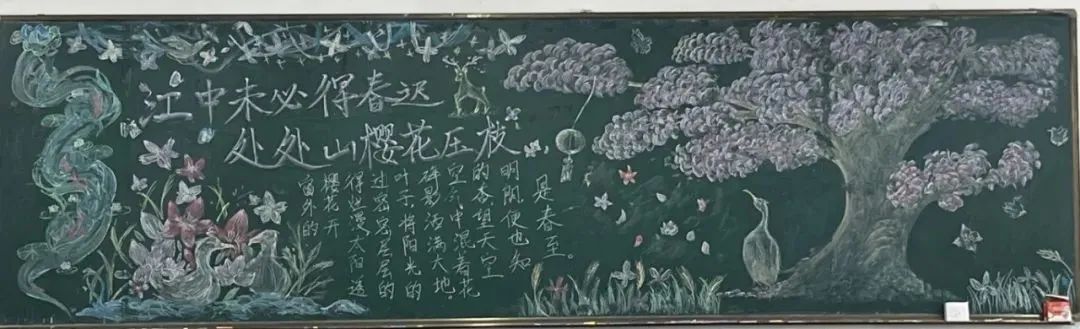 江中未必得春迟
处处山樱花压枝
窗外的
樱花开
得漫太阳透
过密密层层的
叶子将阳光的
碎易洒满大地。
空气中混着花
的香望天空
明朗便也知
是春至。